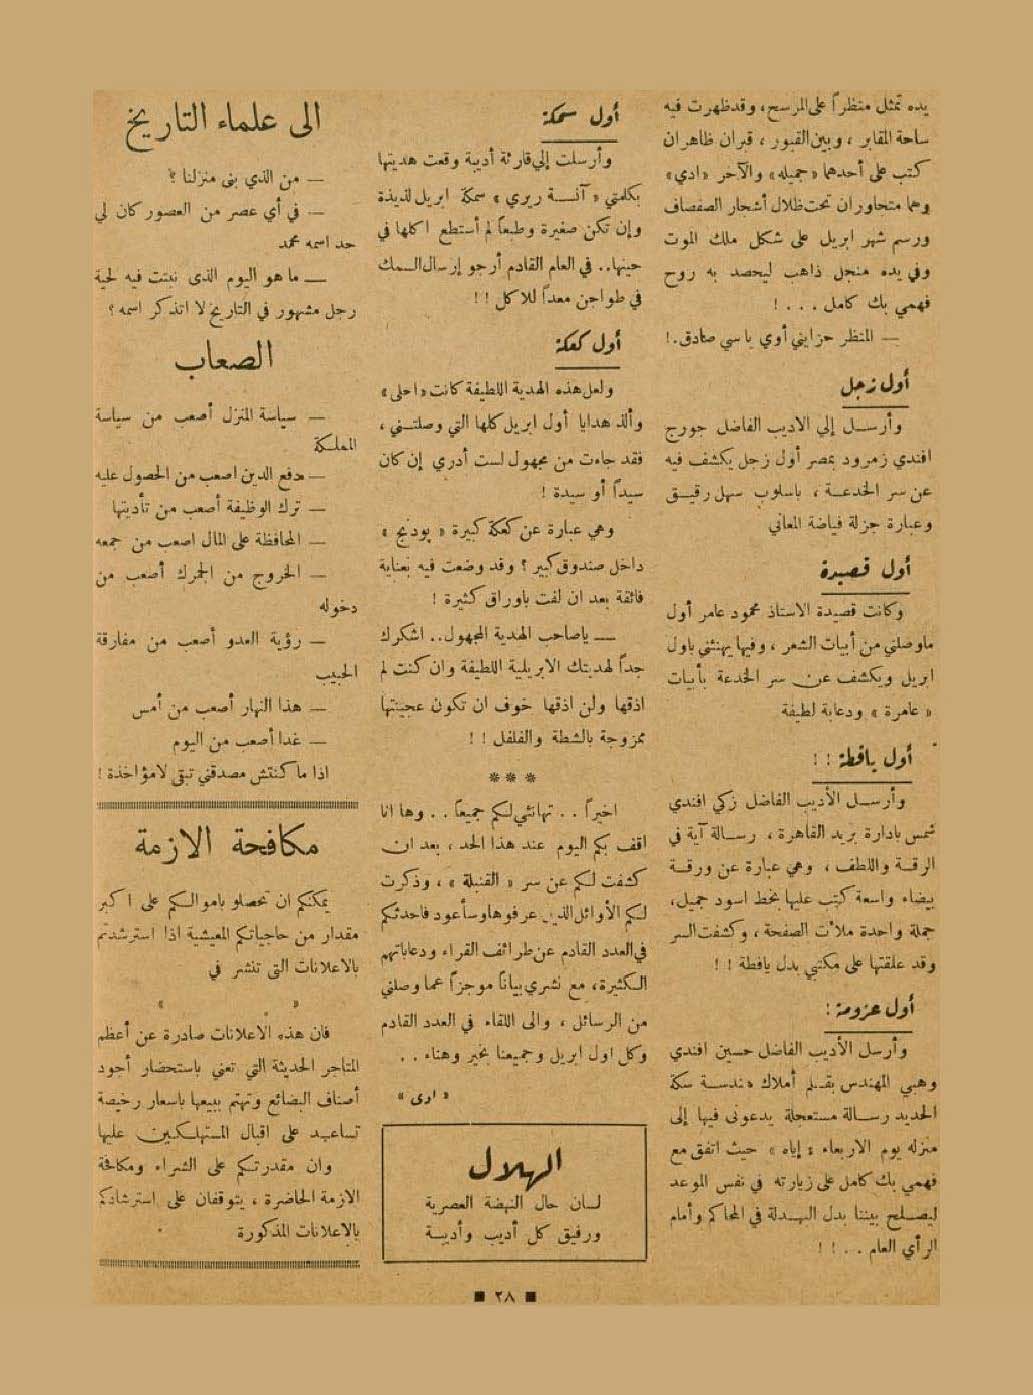 يده تمثل منظراً على المرسح، وقد ظهرت فيه
ساحة المقابر ، وبين القبور ، قبران ظاهران
كتب على أحدهما «جميله» والآخر «ادي»
وهما متجاوران تحت ظلال أشجار الصفصاف
ورسم شهر ابريل على شكل ملك الموت
وفي يده منجل ذاهب ليحصد به روح
فهمي بك كامل . . . !
— المنظر حزايني أوي يا سي صادق.!
أول زجل
وأرسل إلي الاديب الفاضل جورج
افندي زمرود بمصر أول زجل يكشف فيه
عن سر الخدعة ، باسلوب سهل رقيق
وعبارة جزلة فياضة المعاني
أول قصيدة
وكانت قصيدة الاستاذ محمود عامر أول
ماوصلني من أبيات الشعر ، وفيها يهنئني باول
ابريل ويكشف عن سر الخدعة بأبيات
« عامرة » ودعابة لطيفة
أول يافطة ! !
وأرسل الأديب الفاضل زكي افندي
شمس بادارة بريد القاهرة ، رسالة آية في
الرقة واللطف ، وهي عبارة عن ورقة
بيضاء واسعة كتب عليها بخط اسود جميل،
جملة واحدة ملأت الصفحة ، وكشفت السر
وقد علقتها على مكتبي بدل يافطة ! !
أول عزومة :
وأرسل الأديب الفاضل حسين افندي
وهبي المهندس بقلم أملاك هندسة سكة
الحديد رسالة مستعجلة يدعوني فيها إلى
منزله يوم الاربعاء « إياه » حيث اتفق مع
فهمي بك كامل على زيارته في نفس الموعد
ليصلح بيننا بدل البهدلة في المحاكم وأمام
الرأي العام . . . ! !
أول سمكة
وأرسلت إلي قارئة أديبة وقعت هديتها
بكلمتي « آنسة ريري » سمكة ابريل لذيذة
وإن تكن صغيرة وطبعاً لم أستطع اكلها في
حينها.. في العام القادم أرجو إرسال السمك
في طواجن معداً للاكل ! !
أول كعكة
ولعل هذه الهدية اللطيفة كانت «احلى»
وألذ هدايا أول ابريل كلها التي وصلتني ،
فقد جاءت من مجهول لست أدري إن كان
سيداً أو سيدة !
وهي عبارة عن كعكة كبيرة « پودنج »
داخل صندوق كبير ؟ وقد وضعت فيه بعناية
فائقة بعد ان لفت باوراق كثيرة !
— ياصاحب الهدية المجهول.. اشكرك
جداً لهديتك الابريلية اللطيفة وان كنت لم
اذقها ولن اذقها خوف ان تكون عجينتها
ممزوجة بالشطة والفلفل ! !
* * *
اخيراً . . تهانئي لكم جميعاً . . وها انا
اقف بكم اليوم عند هذا الحد ، بعد ان
كشفت لكم عن سر « القنبلة » ، وذكرت
لكم الأوائل الذين عرفوها وسأعود فاحدثكم
في العدد القادم عن طرائف القراء ودعاباتهم
الكثيرة، مع نشري بياناً موجزاً عما وصلني
من الرسائل ، والى اللقاء في العدد القادم
وكل اول ابريل وجميعنا بخير وهناء . .
« ادى »
الهلال
لسان حال النهضة العصرية
ورفيق كل أديب وأديبة
الى علماء التاريخ
— من الذي بنى منزلنا ؟
— في أي عصر من العصور كان لي
جد اسمه محمد
— ما هو اليوم الذى نبتت فيه لحية
رجل مشهور في التاريخ لا اتذكر اسمه ؟
الصعاب
— سياسة المنزل أصعب من سياسة
المملكة
— دفع الدين اصعب من الحصول عليه
— ترك الوظيفة أصعب من تأديتها
— المحافظة على المال اصعب من جمعه
— الخروج من الجمرك أصعب من
دخوله
— رؤية العدو أصعب من مفارقة
الحبيب
— هذا النهار أصعب من أمس
— غدا أصعب من اليوم
اذا ما كنتش مصدقني تبقى لامؤاخذة !
مكافحة الازمة
يمكنكم ان تحصلو باموالكم على اكبر
مقدار من حاجياتكم المعيشية اذا استرشدتم
بالاعلانات التى تنشر في
« »
فان هذه الاعلانات صادرة عن أعظم
المتاجر الحديثة التي تعني باستحضار أجود
أصناف البضائع وتهتم ببيعها باسعار رخيصة
تساعد على اقبال المستهلكين عليها
وان مقدرتكم على الشراء ومكافحة
الازمة الحاضرة ، يتوقفان على استرشادكم
بالاعلانات المذكورة
■ ٢٨ ■